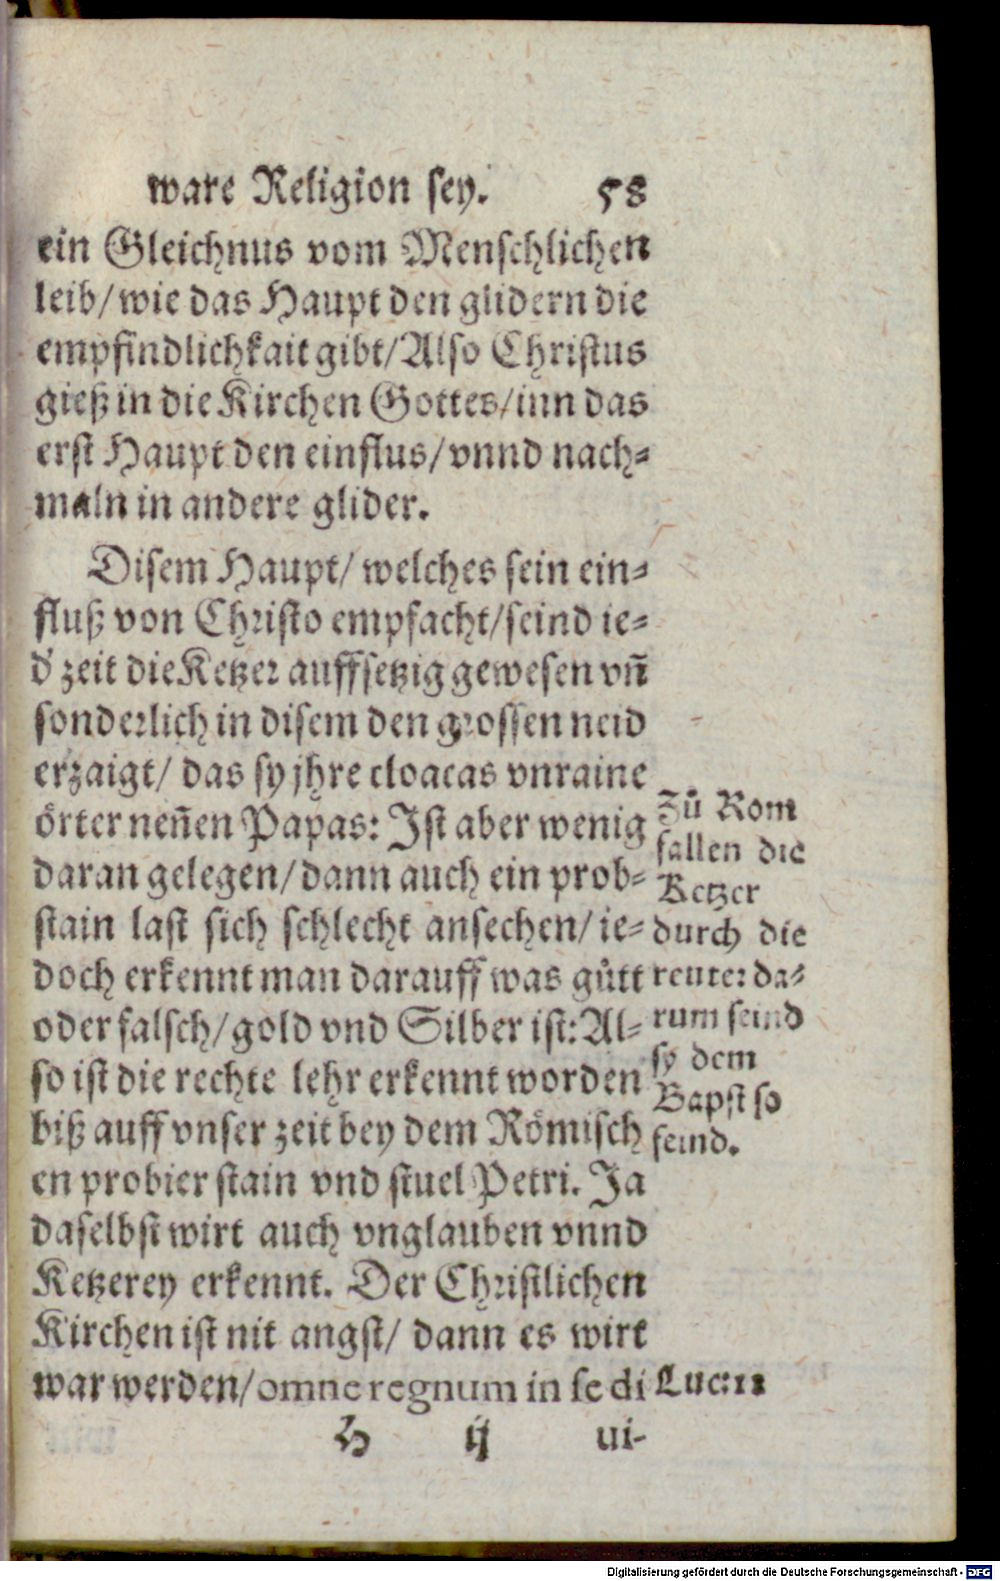 ware Religion sey. 58
ein Gleichnus vom Menschlichen
leib/ wie das Haupt den glidern die
empfindlichkait gibt/ Also Christus
gieß in die Kirchen Gottes/ inn das
erst Haupt den einflus/ vnnd nach⸗
maln in andere glider.
Disem Haupt/ welches sein ein⸗
fluß von Christo empfacht/ seind ie⸗
d' zeit die Ketzer auffsetzig gewesen vn̄
sonderlich in disem den grossen neid
erzaigt/ das sy jhre cloacas vnraine
örter nen̄en Papas: Ist aber wenig
daran gelegen/ dann auch ein prob⸗
stain last sich schlecht ansechen/ ie⸗
doch erkennt man darauff was gůtt
oder falsch/ gold vnd Silber ist: Al⸗
so ist die rechte lehr erkennt worden
biß auff vnser zeit bey dem Römisch
en probier stain vnd stuel Petri. Ja
daselbst wirt auch vnglauben vnnd
Ketzerey erkennt. Der Christlichen
Kirchen ist nit angst/ dann es wirt
war werden/ omne regnum in se di
Zů Rom
fallen die
Ketzer
durch die
reuter da⸗
rum seind
sy dem
Bapst so
feind.
Luc: 11
H ij ui-
Digitalisierung gefördert durch die Deutsche Forschungsgemeinschaft - DFG